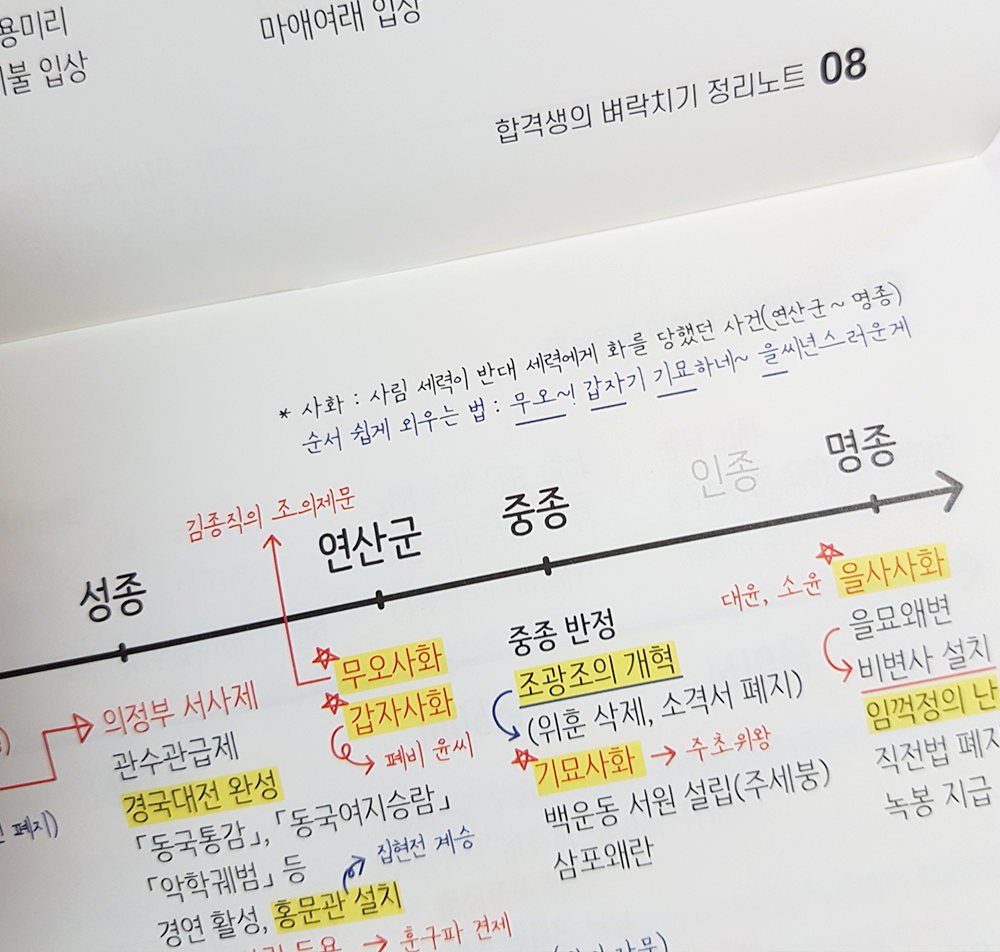 용미리
마애여래 입상
불 입상
합격생의 벼락치기 정리노트 08
* 사화 : 사림 세력이 반대 세력에게 화를 당했던 사건(연산군 ~ 명종)
순서 쉽게 외우는 법 : 무오~! 갑자기 기묘하네~ 을씨년스러운게
성종
연산군
중종
인종
명종
김종직의 조의제문
의정부 서사제
관수관급제
경국대전 완성
「동국통감」, 「동국여지승람」
「악학궤범」 등
집현전 계승
경연 활성, 홍문관 설치
등용 → 훈구파 견제
무오사화
갑자사화
폐비 윤씨
중종 반정
조광조의 개혁
(위훈 삭제, 소격서 폐지)
기묘사화 → 주초위왕
백운동 서원 설립(주세붕)
삼포왜란
대윤, 소윤
을사사화
을묘왜변
비변사 설치
임꺽정의 난
직전법 폐지
녹봉 지급
폐지)